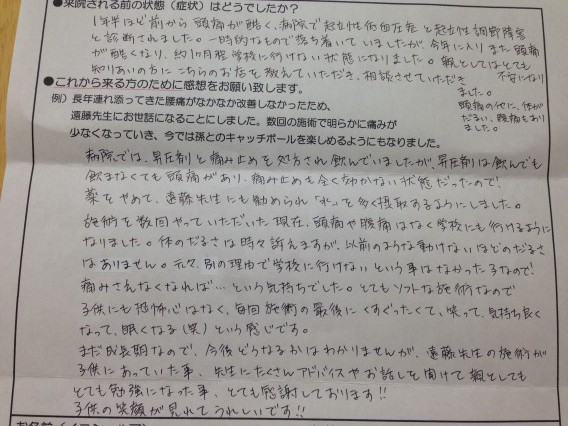 ●来院される前の状態（症状）はどうでしたか？
1年半ほど前から頭痛が酷く、病院で起立性低血圧症と起立性調節障害
と診断されました。一時的なもので落ち着いていましたが、今年に入りまた頭痛
が酷くなり、約1ヵ月程学校に行けない状態になりました。親としてはとても
不安になり
知りあいの方にこちらのお店を教えていただき、相談させていただき
ました。
頭痛の他に、体が
だるい、腹痛もあり
ました。
●これから来る方のために感想をお願い致します。
例）長年連れ添ってきた腰痛がなかなか改善しなかったため、
遠藤先生にお世話になることにしました。数回の施術で明らかに痛みが
少なくなっていき、今では孫とのキャッチボールを楽しめるようにもなりました。
病院では、昇圧剤と痛み止めを処方され飲んでいましたが、昇圧剤は飲んでも
飲まなくても頭痛があり、痛み止めも全く効かない状態だったので！
薬をやめて、遠藤先生にも勧められ「水」を多く摂取するようにしました。
施術を数回やっていただいた現在、頭痛や腹痛はなく学校にも行けるように
なりました。体のだるさは時々訴えますが、以前のような動けないほどのだるさ
はありません。元々、別の理由で学校に行けないという事はなかった子なので！
痛みさえなくなれば…という気持ちでした。とてもソフトな施術なので
子供にも恐怖心はなく、毎回施術の最後にくすぐったくて、笑って、気持ち良く
なって、眠くなる（笑）という感じです。
まだ成長期なので、今後どうなるかはわかりませんが、遠藤先生の施術が
子供にあっていた事、先生にたくさんアドバイスやお話しを聞けて親としても
とても勉強になった事、とても感謝しております!!
子供の笑顔が見れてうれしいです!!